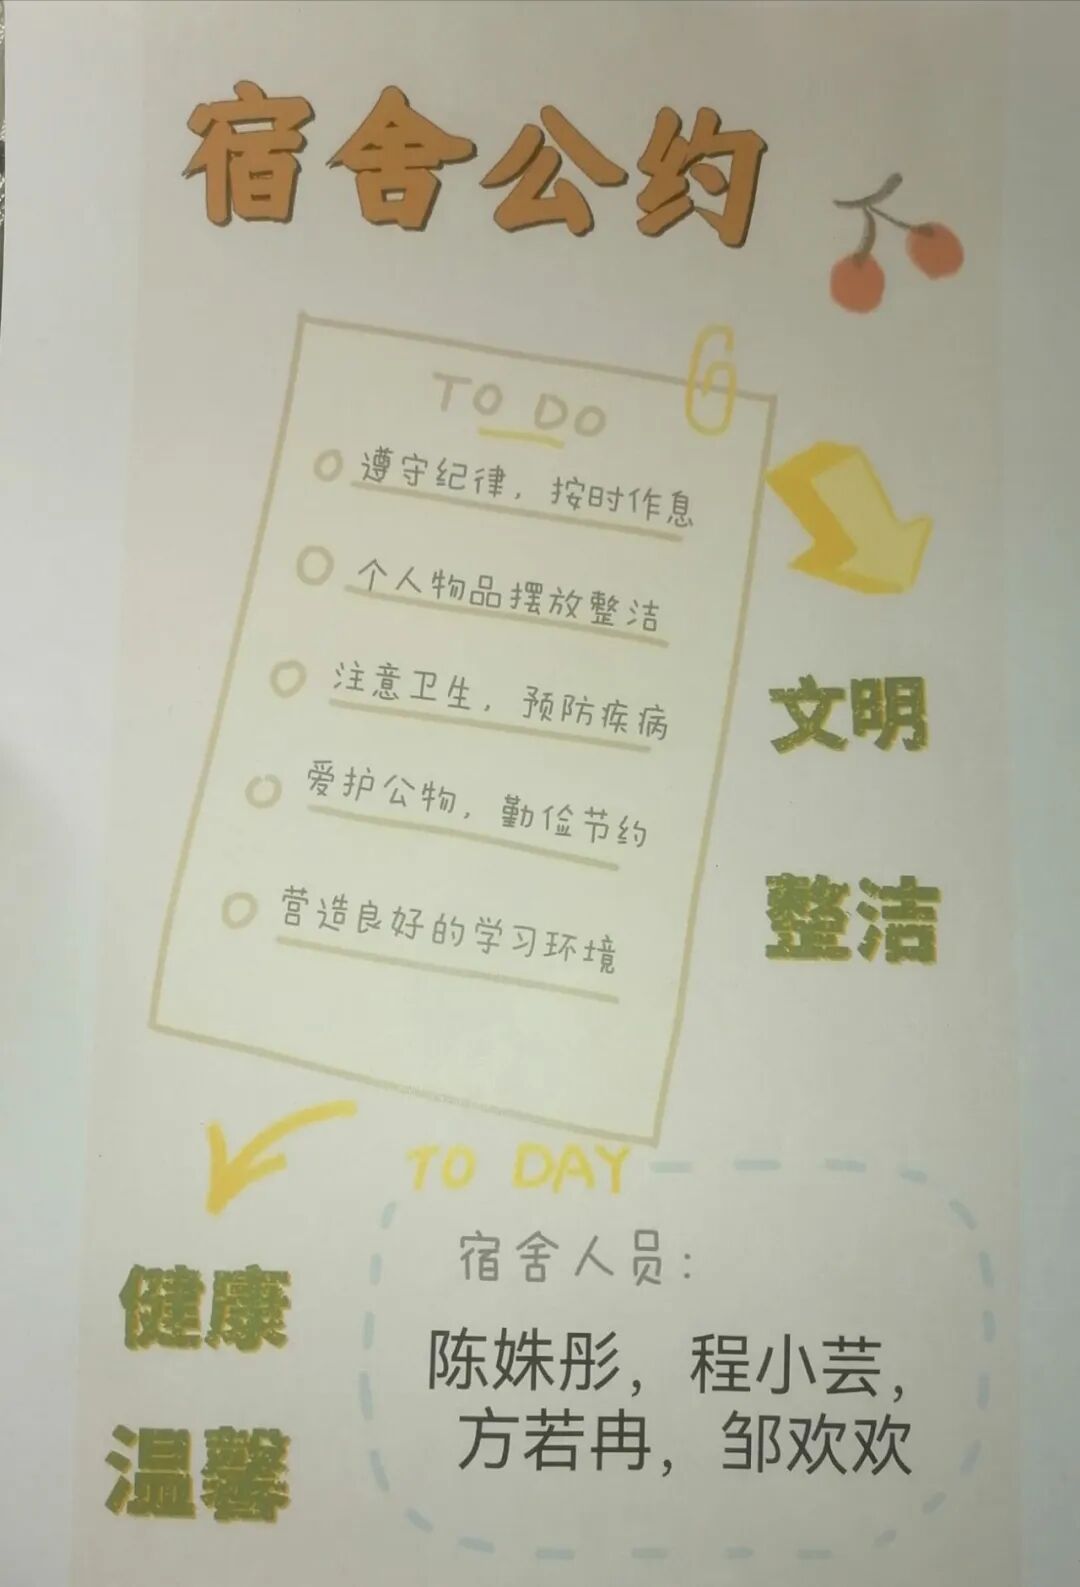 宿舍公约
TO DO
遵守纪律，按时作息
个人物品摆放整洁
注意卫生，预防疾病
爱护公物，勤俭节约
营造良好的学习环境
文明
整洁
健康
温馨
TO DAY
宿舍人员：
陈姝彤，程小芸，
方若冉，邹欢欢